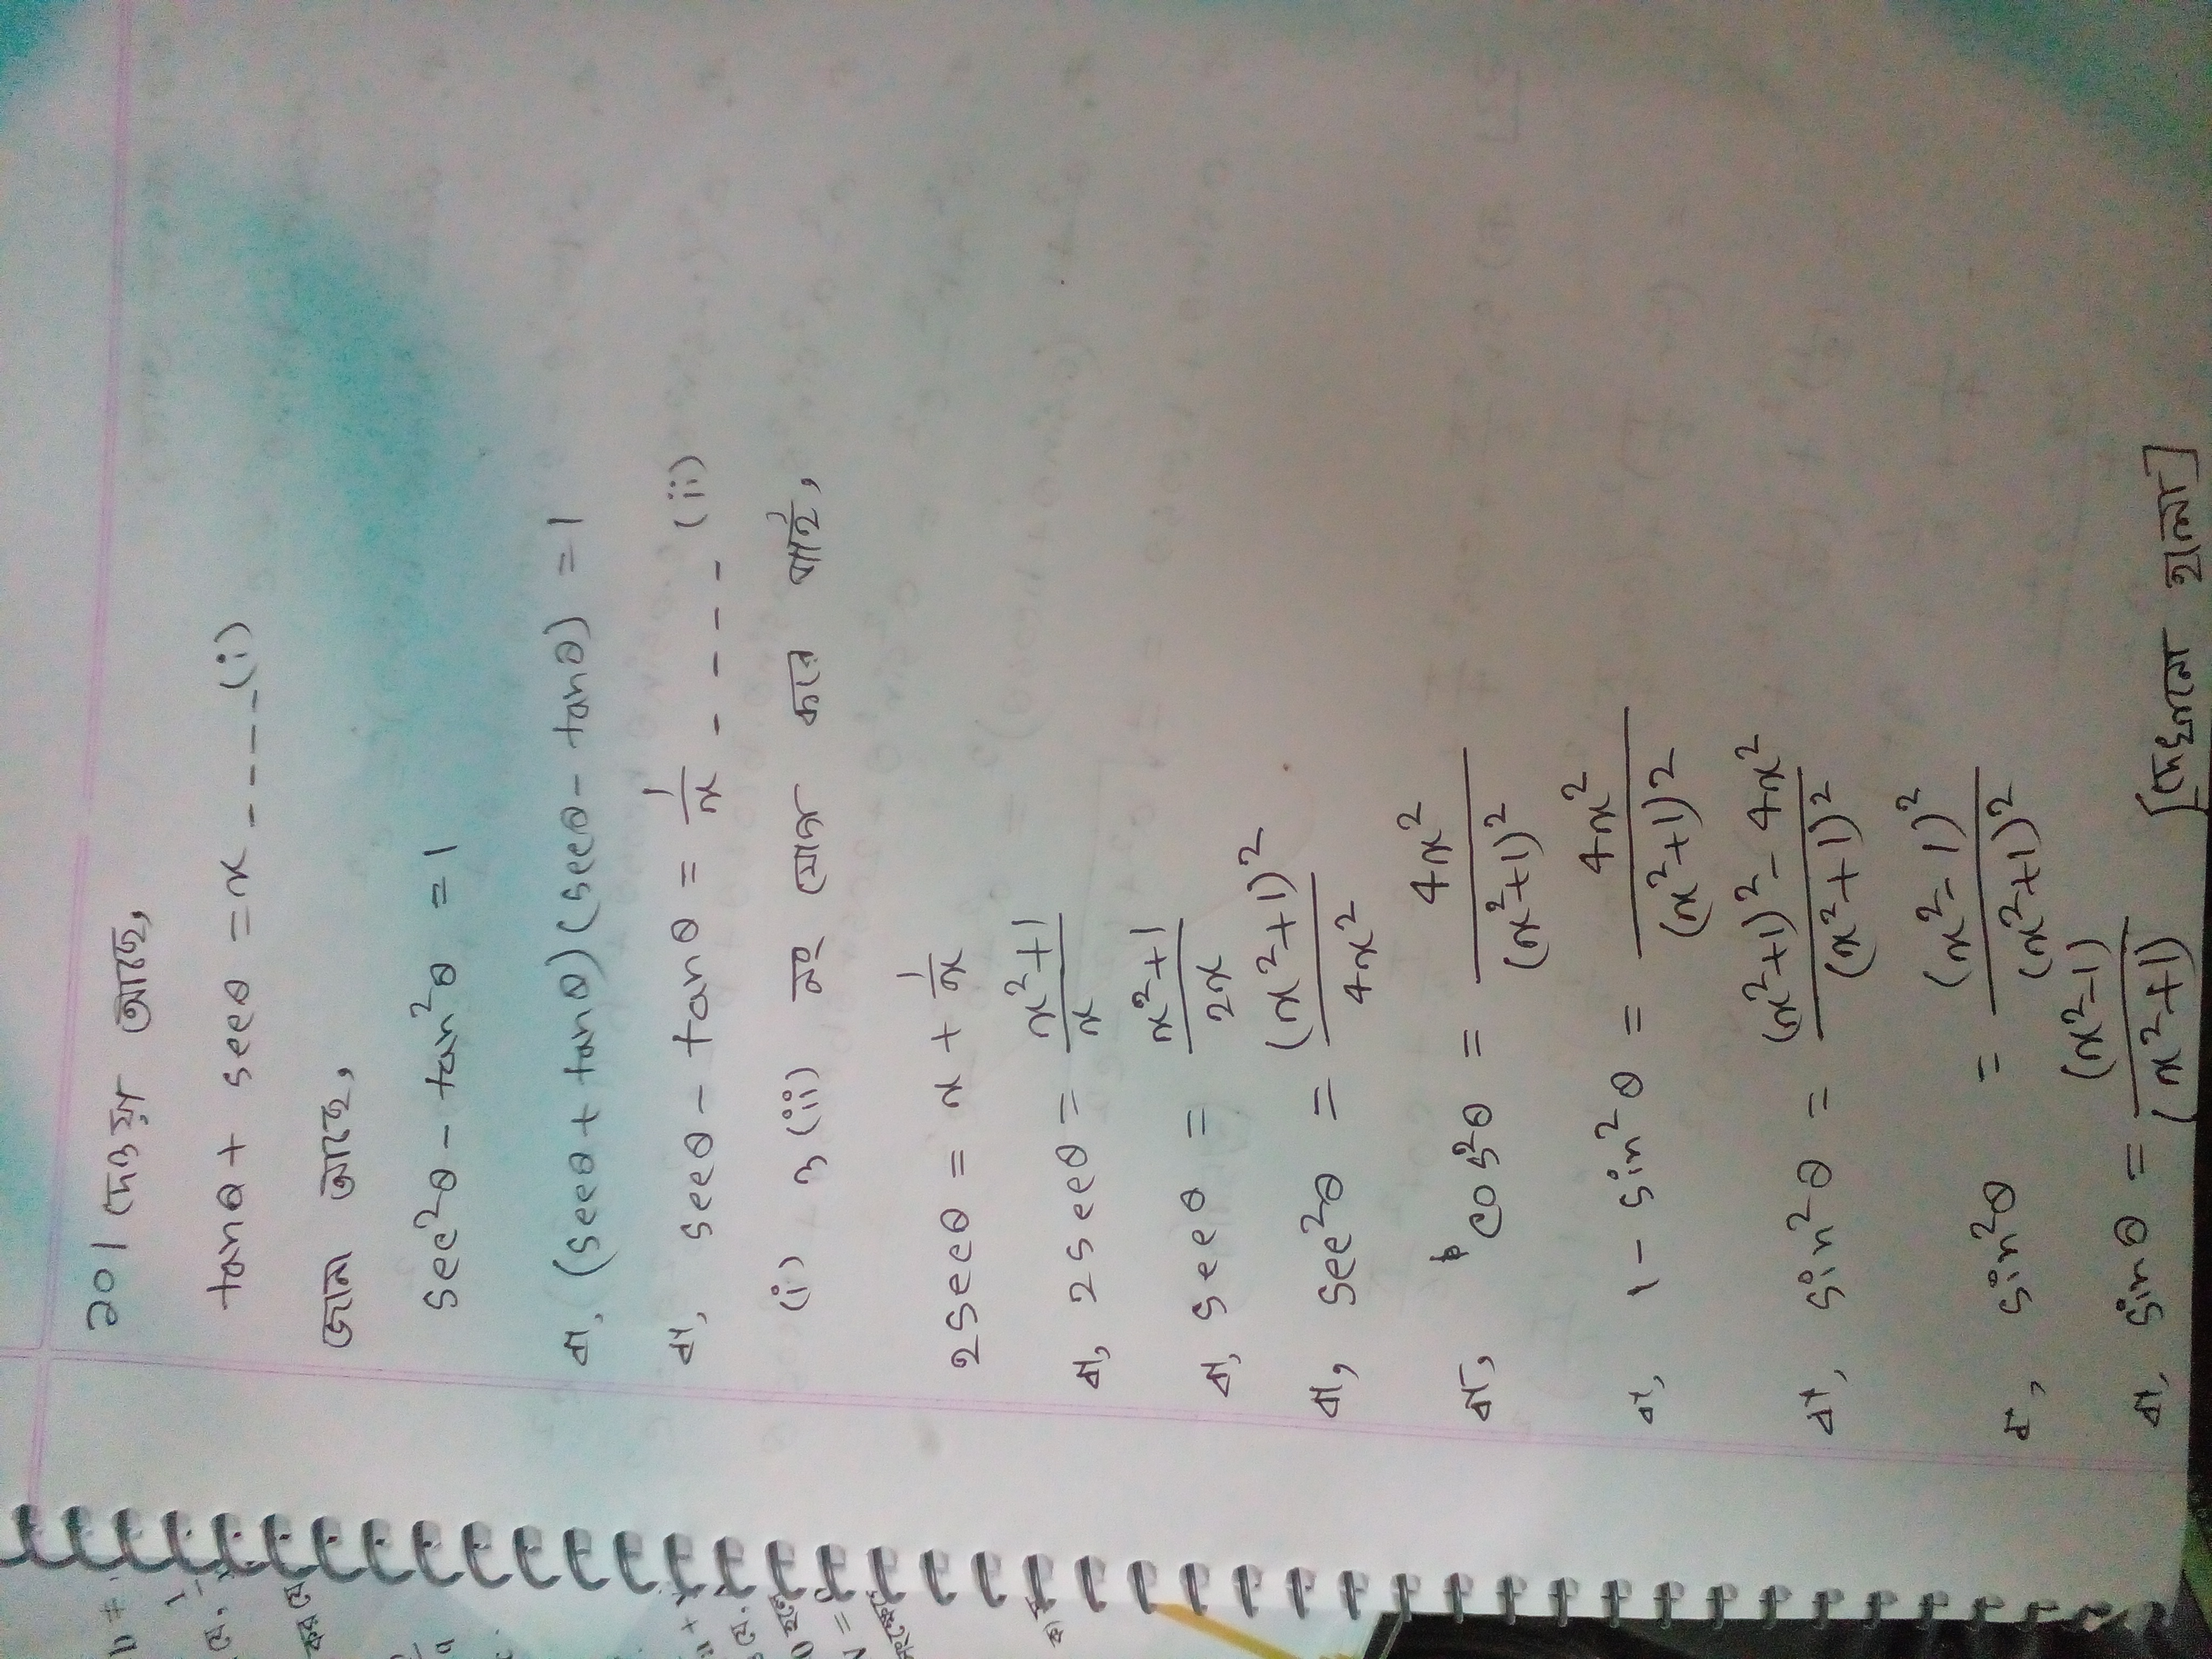 ২০। দেওয়া আছে,
tanθ + secθ = x ----- (i)
জানা আছে,
sec²θ - tan²θ = 1
বা, (secθ + tanθ) (secθ - tanθ) = 1
বা, secθ - tanθ = 1/x ---- (ii)
(i) ও (ii) নং যোগ করে পাই,
2secθ = x + 1/x
বা, 2secθ = x²+1/x
বা, secθ = x²+1/2x
বা, sec²θ = (x²+1)²/4x²
বা, cos²θ = 4x²/(x²+1)²
বা, 1 - sin²θ = 4x²/(x²+1)²
বা, sin²θ = (x²+1)² - 4x²/(x²+1)²
বা, sin²θ = (x²-1)²/(x²+1)²
বা, sinθ = (x²-1)/(x²+1) [দেখানো হলো]